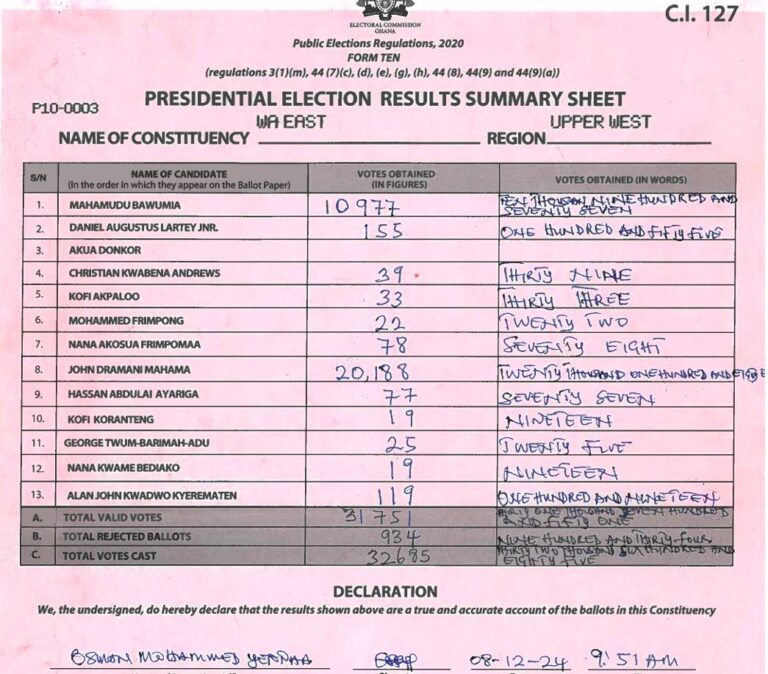 C.I. 127
ELECTORAL COMMISSION
GHANA
Public Elections Regulations, 2020
FORM TEN
(regulations 3(1)(m), 44 (7)(c), (d), (e), (g), (h), 44 (8), 44(9) and 44(9)(a))
P10-0003
PRESIDENTIAL ELECTION RESULTS SUMMARY SHEET
NAME OF CONSTITUENCY WA EAST REGION UPPER WEST
S/N NAME OF CANDIDATE (In the order in which they appear on the Ballot Paper) VOTES OBTAINED (IN FIGURES) VOTES OBTAINED (IN WORDS)
1. MAHAMUDU BAWUMIA 10977 TEN THOUSAN NINE HUNDRED AND SEVENTY SEVEN
2. DANIEL AUGUSTUS LARTEY JNR. 155 ONE HUNDRED AND FIFTY FIVE
3. AKUA DONKOR
4. CHRISTIAN KWABENA ANDREWS 39 THIRTY NINE
5. KOFI AKPALOO 33 THIRTY THREE
6. MOHAMMED FRIMPONG 22 TWENTY TWO
7. NANA AKOSUA FRIMPOMAA 78 SEVENTY EIGHT
8. JOHN DRAMANI MAHAMA 20,188 TWENTY THOUSAND ONE HUNDRED AND
9. HASSAN ABDULAI AYARIGA 77 SEVENTY SEVEN
10. KOFI KORANTENG 19 NINETEEN
11. GEORGE TWUM-BARIMAH-ADU 25 TWENTY FIVE
12. NANA KWAME BEDIAKO 19 NINETEEN
13. ALAN JOHN KWADWO KYEREMATEN 119 ONE HUNDRED AND NINETEEN
A. TOTAL VALID VOTES 31751 THIRTY ONE THOUSAND SEVEN HUNDRED AND FIFTY ONE
B. TOTAL REJECTED BALLOTS 934 NINE HUNDRED AND THIRTY FOUR
C. TOTAL VOTES CAST 32685 THIRTY TWO THOUSAND SIX HUNDRED AND EIGHTY FIVE
DECLARATION
We, the undersigned, do hereby declare that the results shown above are a true and accurate account of the ballots in this Constituency
OSMAN MOHAMMED 08-12-24 9:51 AM